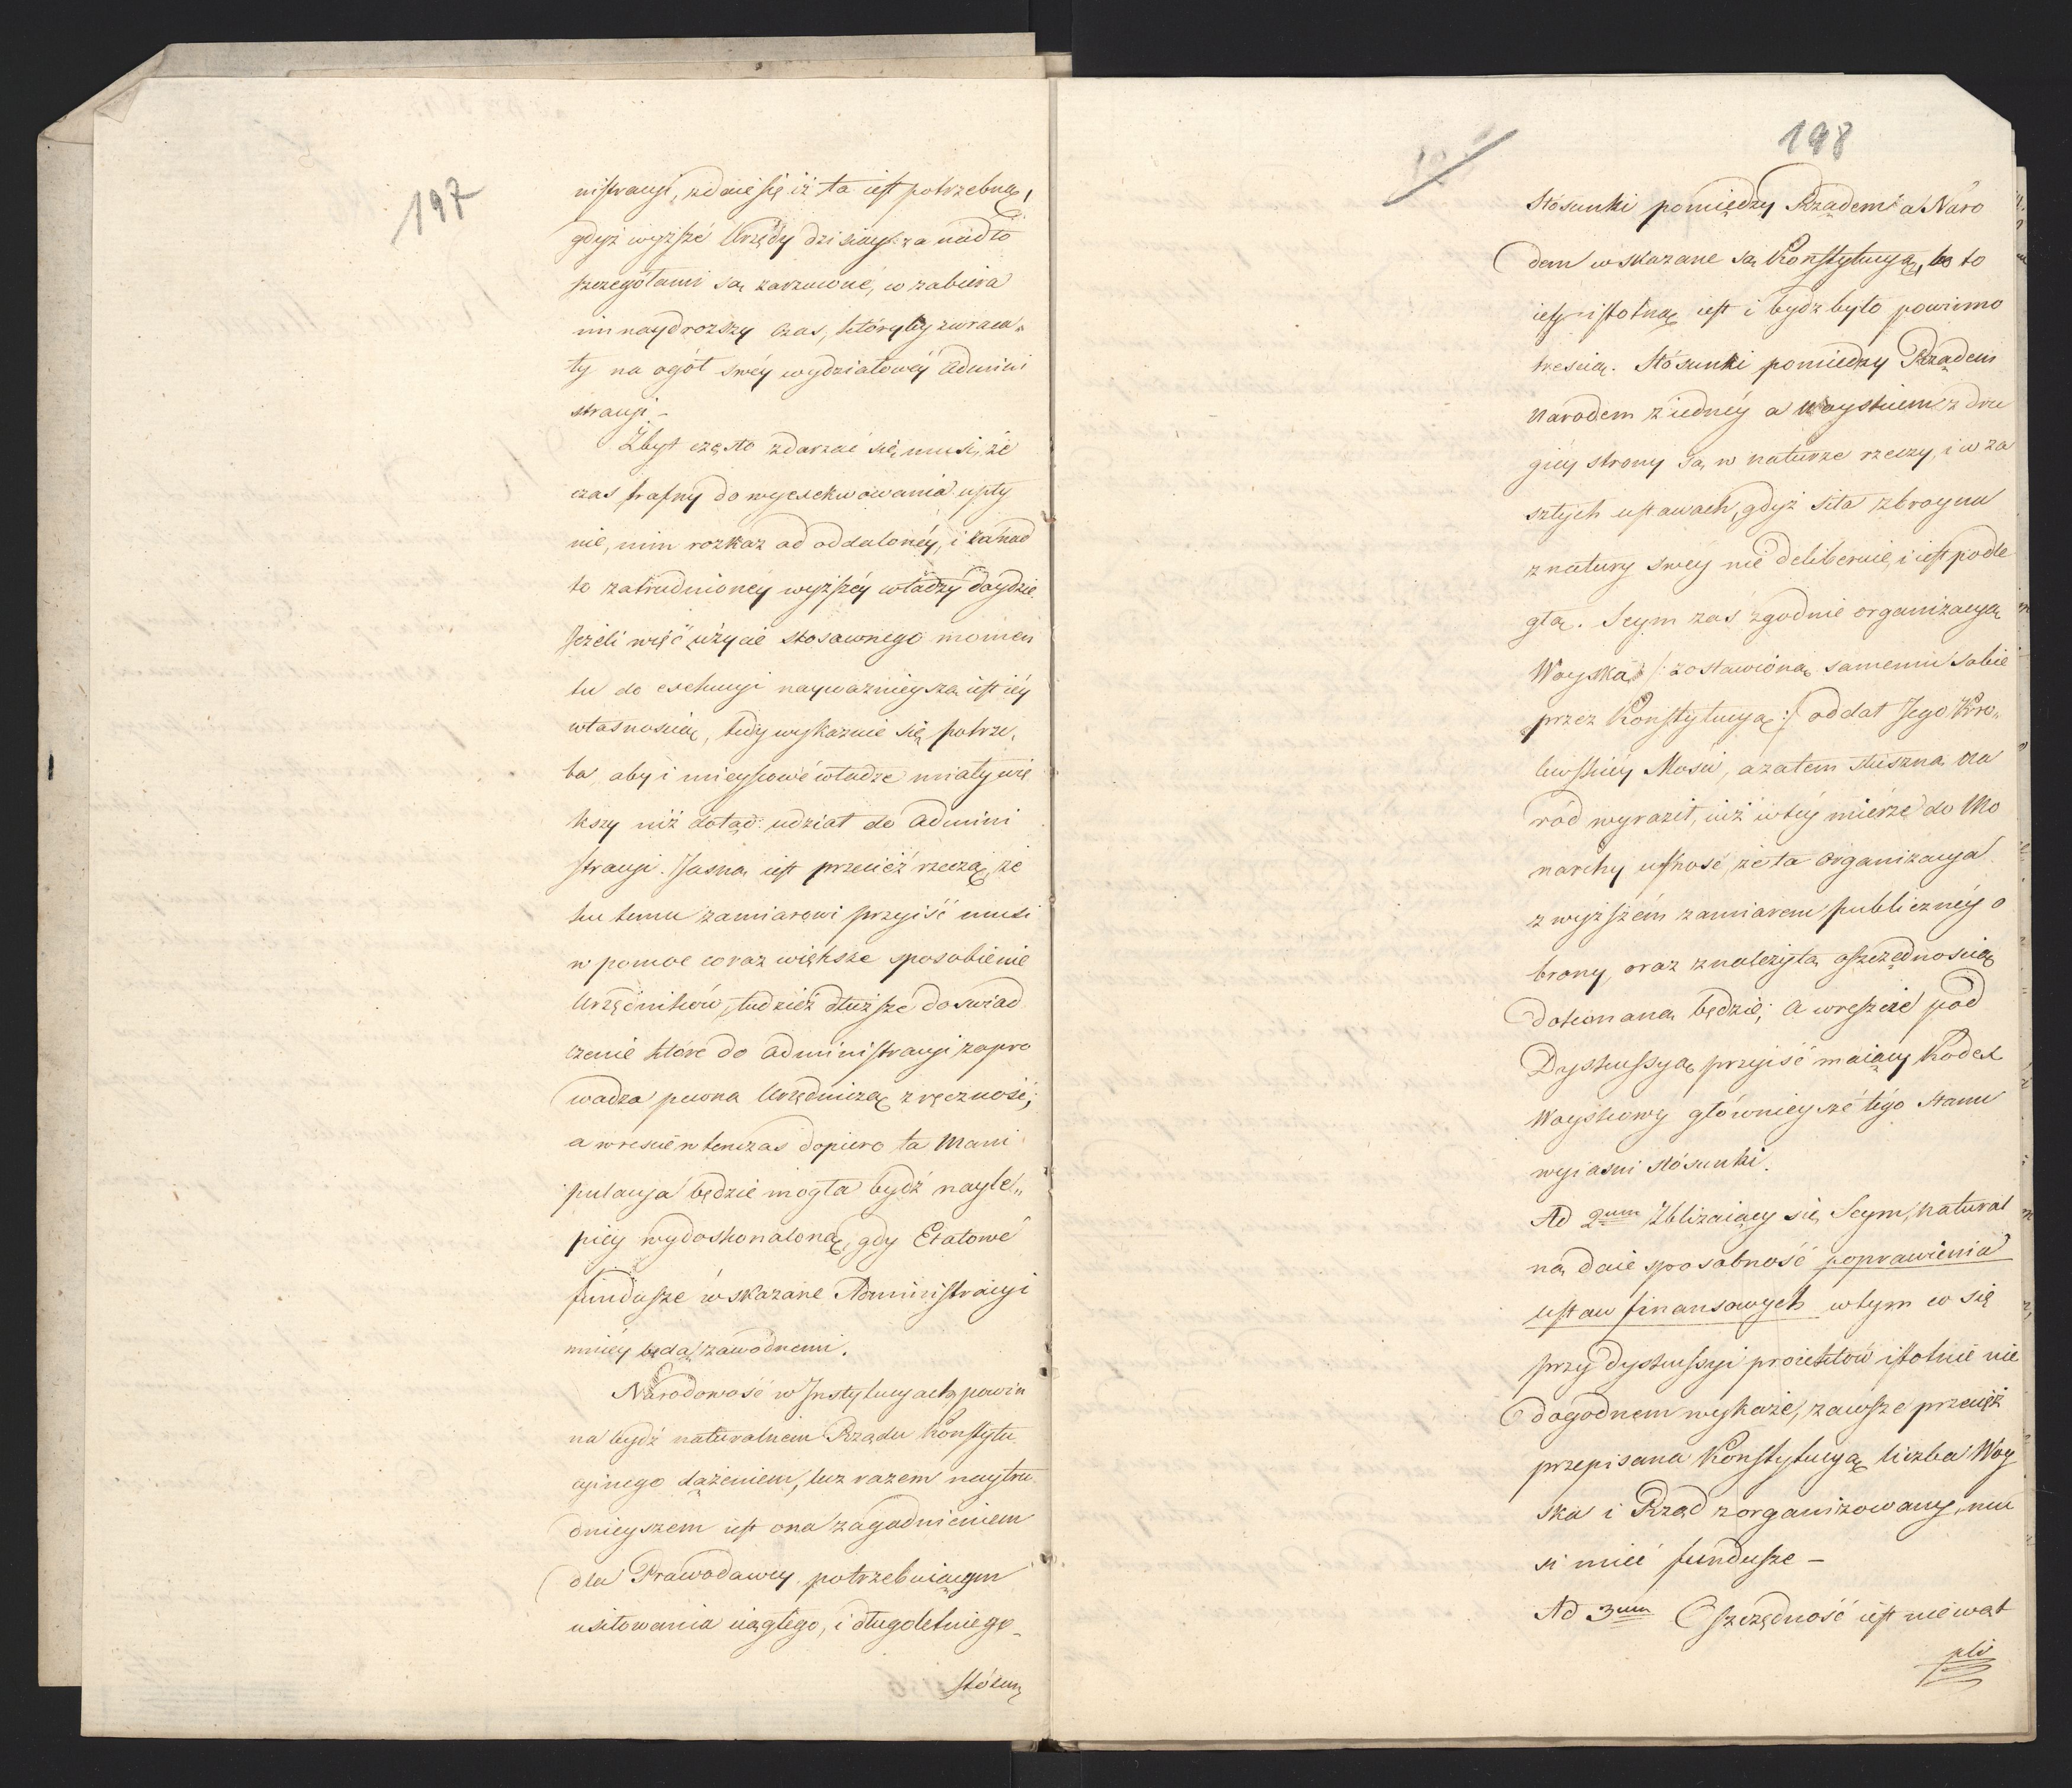 197
nistracyi, zdaie się iż ta iest potrzebną,
gdyż wyższe Urzędy dzisiay za nadto
szczegółami są zarzucone, co zabiera
im naydrozszy czas, któryby zwraca„
ły na ogół swéy wydziałowéy admini
stracyi –
Zbyt często zdarzać się musi, że
czas trafny do wyexekwowania upły
nie, nim rozkaz od oddalonéy, i zanad
to zatrudnionéy wyższéy władzy doydzie.
Jeżeli więc użycie stosownego momen
tu do exekucyi nayważnieysza iest iéy
własnością, tedy wykazuie się potrze„
ba, aby i mieyscowé władze miały wię
kszy niż dotąd udział do admini
stracyi. Jasną iest przecież rzeczą, że
ku temu zamiarowi przyiść musi
w pomoc coraz większe sposobienie
Urzędników, tudzież dłuższe doswiad
czenie które do administracyi zapro
wadza pewna Urzędniczą zręczność;
a wrescie wtenczas dopiero ta mani
pulacya będzie mogła bydź nayle„
piéy wydoskonaloną, gdy Etatowe
fundusze wskazane Administracyi
mniéy będą zawodnemi.
Narodowość w Instytucyach powin
na bydź naturalnem Rządu Konstytu
cyinego dążeniem, lecz razem naytru
dnieyszem iest ona zagadnieniem
dla Prawodawcy potrzebuiącym
usiłowania ciągłego, i długoletniego –
stósun
198
Stósunki pomiędzy Rządem a Naro
dem wskazane są Konstytucyą, bo to
iey istotną iest i bydz było powinno
trescią. Stósunki pomiedzy Rządem
Narodem z iednéy a Woyskiem z dru
giéy strony są w naturze rzeczy, i w za
szłych ustawach, gdyż siła zbroyna
z natury swey nie deliberuie, i iest podle
głą. Seym zaś zgodnie organizacyą
Woyska /: zostawioną samemu sobie
przez Konstytucyą :/ oddał Jego Kro„
lewskiéy Mości, a zatem słuszną na
ród wyraził, iuż w téy mierze do Mo
narchy ufność, że ta organizacya
z wyższém zamiarem publicznéy o
brony, oraz z należytą oszczędnością
dokonaną będzie; a wreszcie pod
Dyskussyą przyiść maiący Kodex
Woyskowy główniéysze tego stanu
wyiasni stósunki.
Ad 2um Zbliżaiący się Seym, natural
ną daie sposobność poprawienia
ustaw finansowych w tym co się
przy dyskussyi proiektów istotnie nie
dogodnem wykaże, zawsze przecięż
przepisana Konstytucyą liczba Woy
ska i Rząd zorganizowany, mu
si mieć fundusze –
Ad 3um Oszczędność iest niewąt
pli